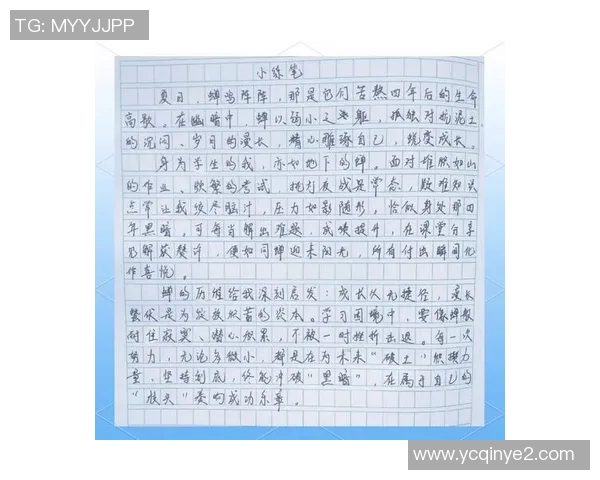 TG: MYYJJPP
小练笔
夏日,蝉鸣阵阵,那是它们苦熬四年后的生命
高歌。在幽暗中,蝉以弱小之躯,孤独对抗泥土
的沉闷、岁月的漫长,精心雕琢自己,蜕变成长。
身为学生的我,亦如地下的蝉。面对堆积如山
的作业、频繁的考试,挑灯夜战是常态,疑难知识
点常让我绞尽脑汁,压力如影随形,恰似身处那四
年黑暗。可每当解出难题,成绩提升,在课堂分享
见解获赞许,便如同蝉迎来阳光,所有付出瞬间化
作喜悦。
蝉的历程给我深刻启发:成长从无捷径,漫长
蛰伏是为积蓄的资本。学习困境中,要像蝉般
耐住寂寞、潜心积累,不被一时挫折击退。每一次
努力,无论多微小,都是在为未来“破土”积攒力
量,坚持到底,终能冲破“黑暗”,在属于自己的
“枝头”奏响成功乐章。
www.ycqinye2.com